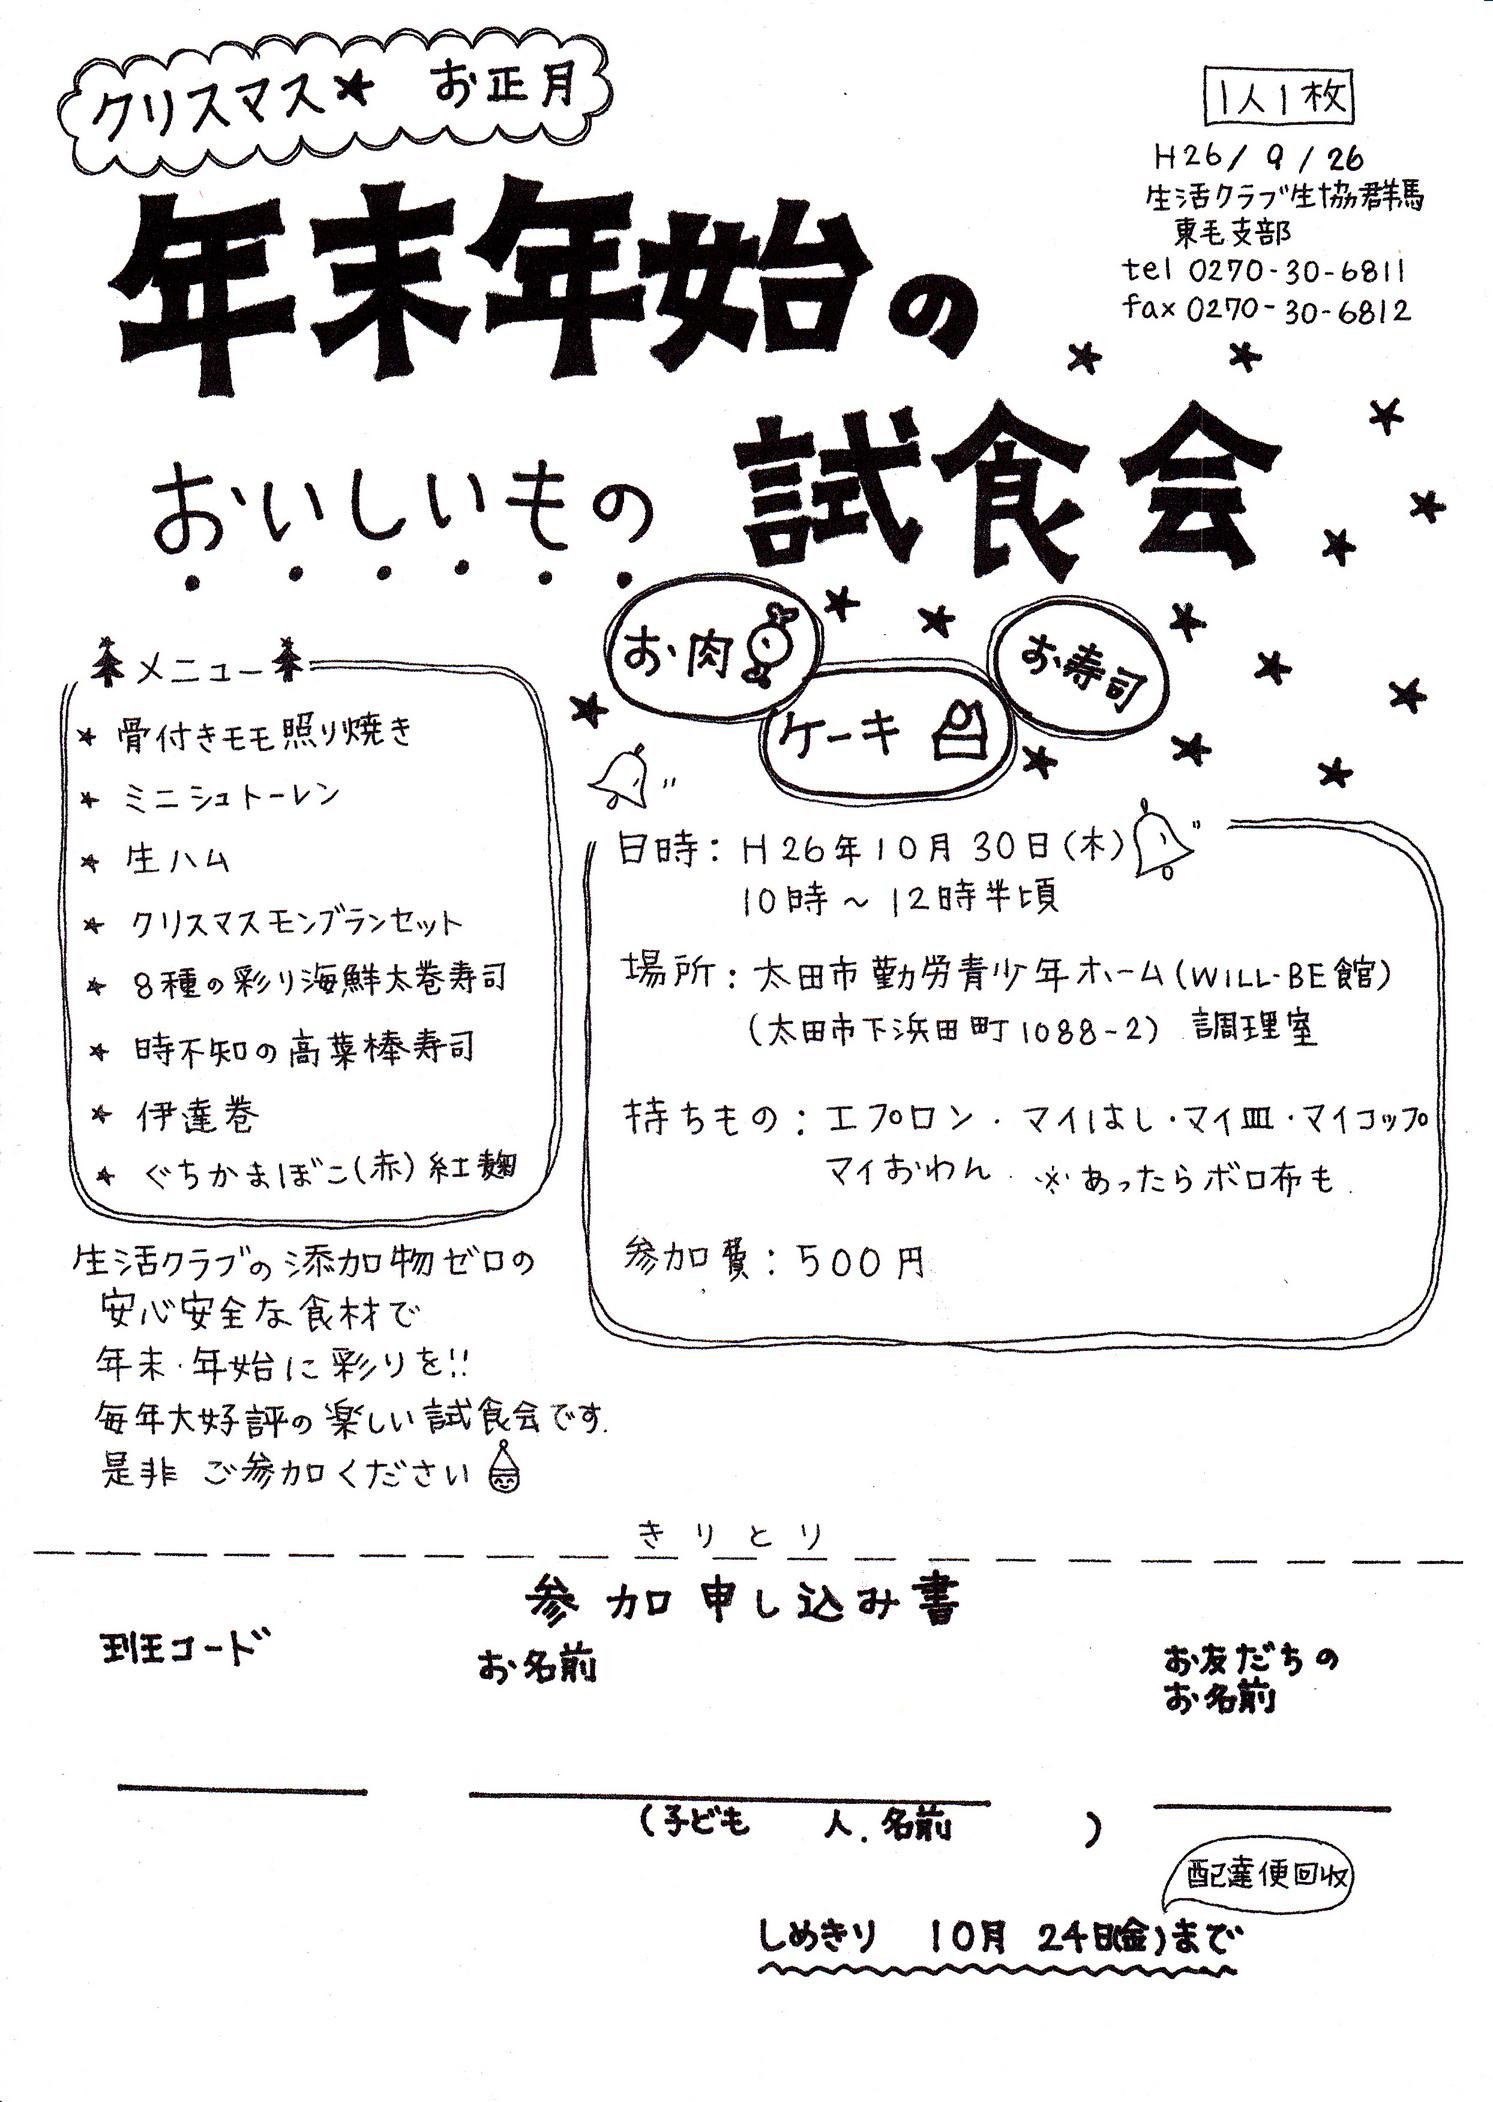 クリスマス★ お正月
1人1枚
H26/9/26
生活クラブ生協群馬
東毛支部
tel 0270-30-6811
fax 0270-30-6812
年末年始の
おいしいもの 試食会
お肉
ケーキ
お寿司
メニュー
★ 骨付きモモ照り焼き
★ ミニシュトーレン
★ 生ハム
★ クリスマスモンブランセット
★ 8種の彩り海鮮太巻寿司
★ 時不知の高葉棒寿司
★ 伊達巻
★ ぐちかまぼこ(赤)紅麹
日時：H26年10月30日(木)
10時～12時半頃
場所：太田市勤労青少年ホーム(WILL-BE館)
(太田市下浜田町1088-2) 調理室
持ちもの：エプロン・マイはし・マイ皿・マイコップ
マイおわん ※あったらボロ布も
参加費：500円
生活クラブの添加物ゼロの
安心安全な食材で
年末・年始に彩りを!!
毎年大好評の楽しい試食会です.
是非 ご参加ください
きりとり
参加申し込み書
班コード
お名前
お友だちの
お名前
(子ども 人.名前 )
配達便回収
しめきり 10月 24日(金)まで